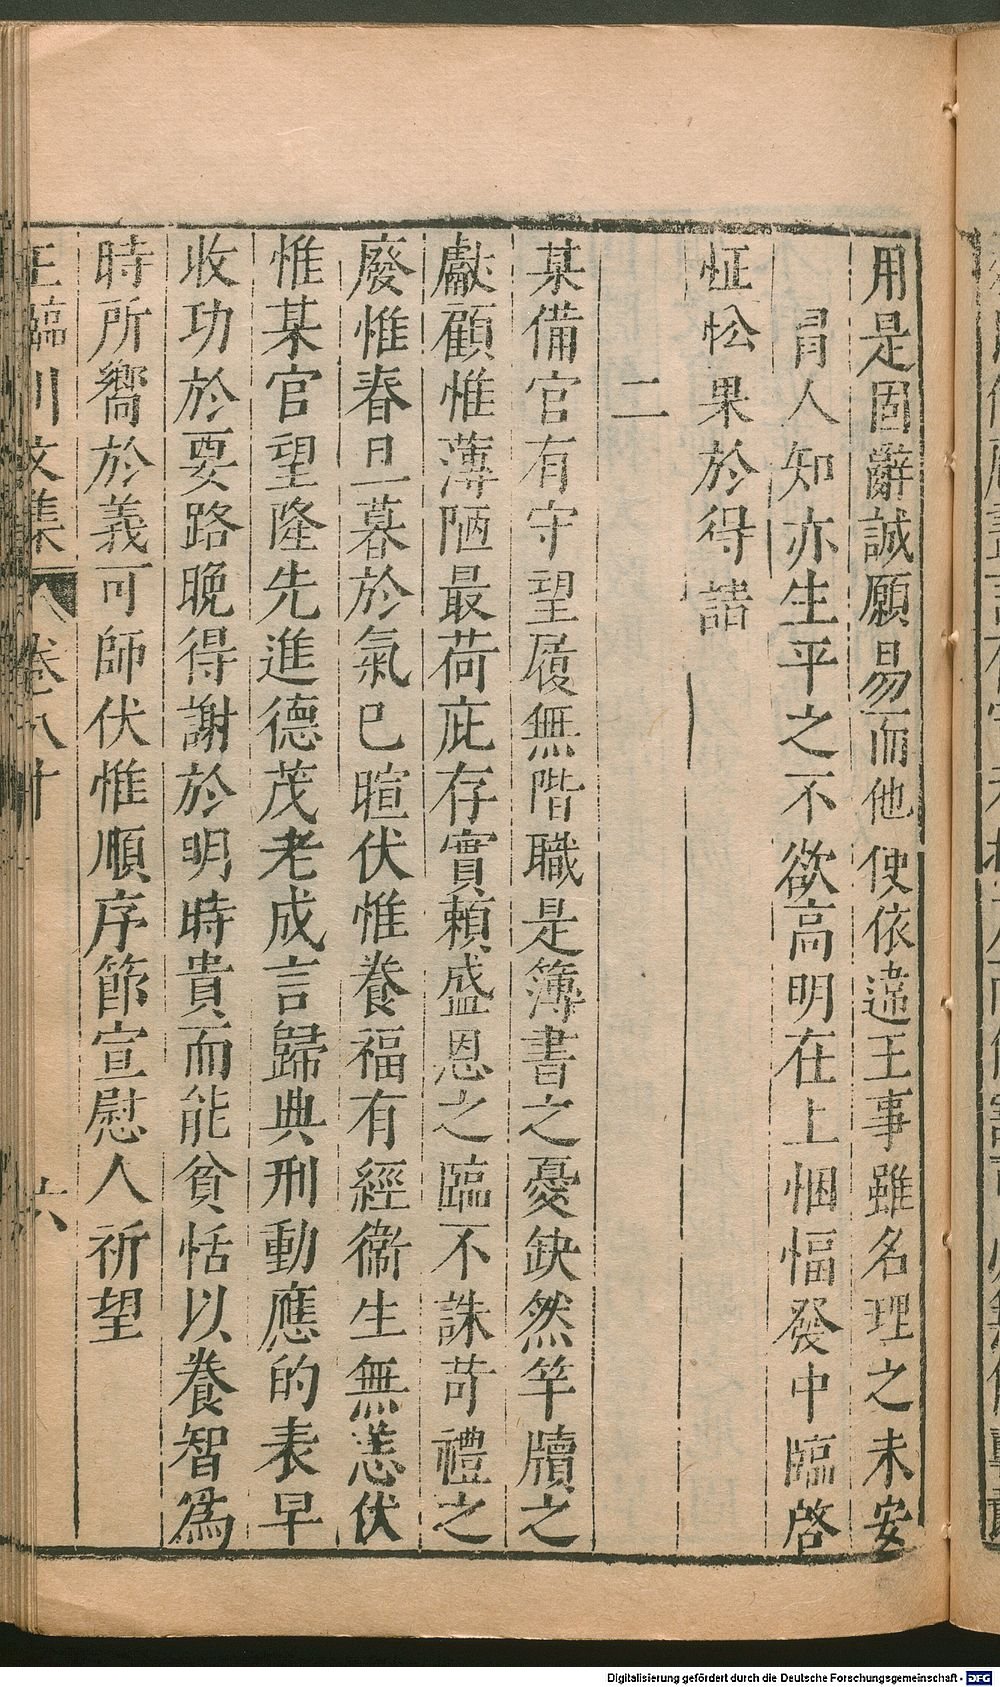 用是固辭誠願易而他使依違王事雖名理之未安
冐人知亦生平之不欲高明在上悃愊發中臨啓
怔忪果於得請
二
某備官有守望履無階職是簿書之憂缺然竿牘之
獻顧惟薄陋最荷庇存實賴盛恩之臨不誅苛禮之
廢惟春旦暮於氣已暄伏惟養福有經衞生無恙伏
惟某官望隆先進德茂老成言歸典刑動應的表早
收功於要路晚得謝於明時貴而能貧恬以養智爲
時所嚮於義可師伏惟順序節宣慰人祈望
王臨川文集 卷八十 六
Digitalisierung gefördert durch die Deutsche Forschungsgemeinschaft - DFG